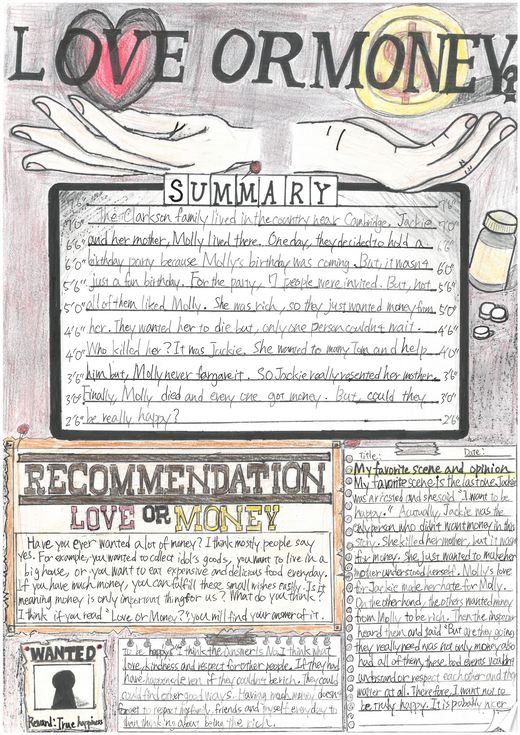 LOVE OR MONEY?
SUMMARY
The Clarkson family lived in the country near Cambridge, Jackie
and her mother, Molly lived there. One day, they decided to hold a
birthday party because Molly's birthday was coming. But, it wasn't
just a fun birthday. For the party, 7 people were invited. But, not
all of them liked Molly. She was rich, so they just wanted money from
her. They wanted her to die but, only one person couldn't wait.
Who killed her? It was Jackie. She wanted to marry Tom and help
him but, Molly never forgave it. So Jackie really resented her mother.
Finally, Molly died and every one got money. But, could they
be really happy?
7'6"
7'0"
6'6"
6'0"
5'6"
5'0"
4'6"
4'0"
3'6"
3'0"
2'6"
RECOMMENDATION
LOVE OR MONEY
Have you ever wanted a lot of money? I think mostly people say
yes. For example, you wanted to collect idol's goods, you want to live in a
big house, or you want to eat expensive and delicious food everyday.
If you have much money, you can fulfill these small wishes easily. Is it
meaning money is only important things for us? What do you think?
I think if you read "Love or Money?", you will find your answer of it.
WANTED
Reward: True happiness
Title: Date:
My favorite scene and opinion
My favorite scene is the last one. Jackie
was arrested and she said "I want to be
happy." Acutually, Jackie was the
only person who didn't want money in this
story. She killed her mother, but it wasn't
for money. She just wanted to make her
mother understand herself. Molly's love
for Jackie made her hate for Molly.
On the other hand, the others wanted money
from Molly to be rich. Then the inspector
heard them and said "But are they going
to be happy?" I think the answer is No. I think what
they really need was not only money also
love, kindness and respect for other people. If they had
had all of them, these bad events wouldn't
have happened even if they couldn't be rich. They could
understand or respect each other and
could find other good ways. Having much money doesn't
matter at all. Therefore, I want not to
forget to respect my family, friends and myself everyday to
be truly happy. It is probably nicer
than thinking about being the rich.